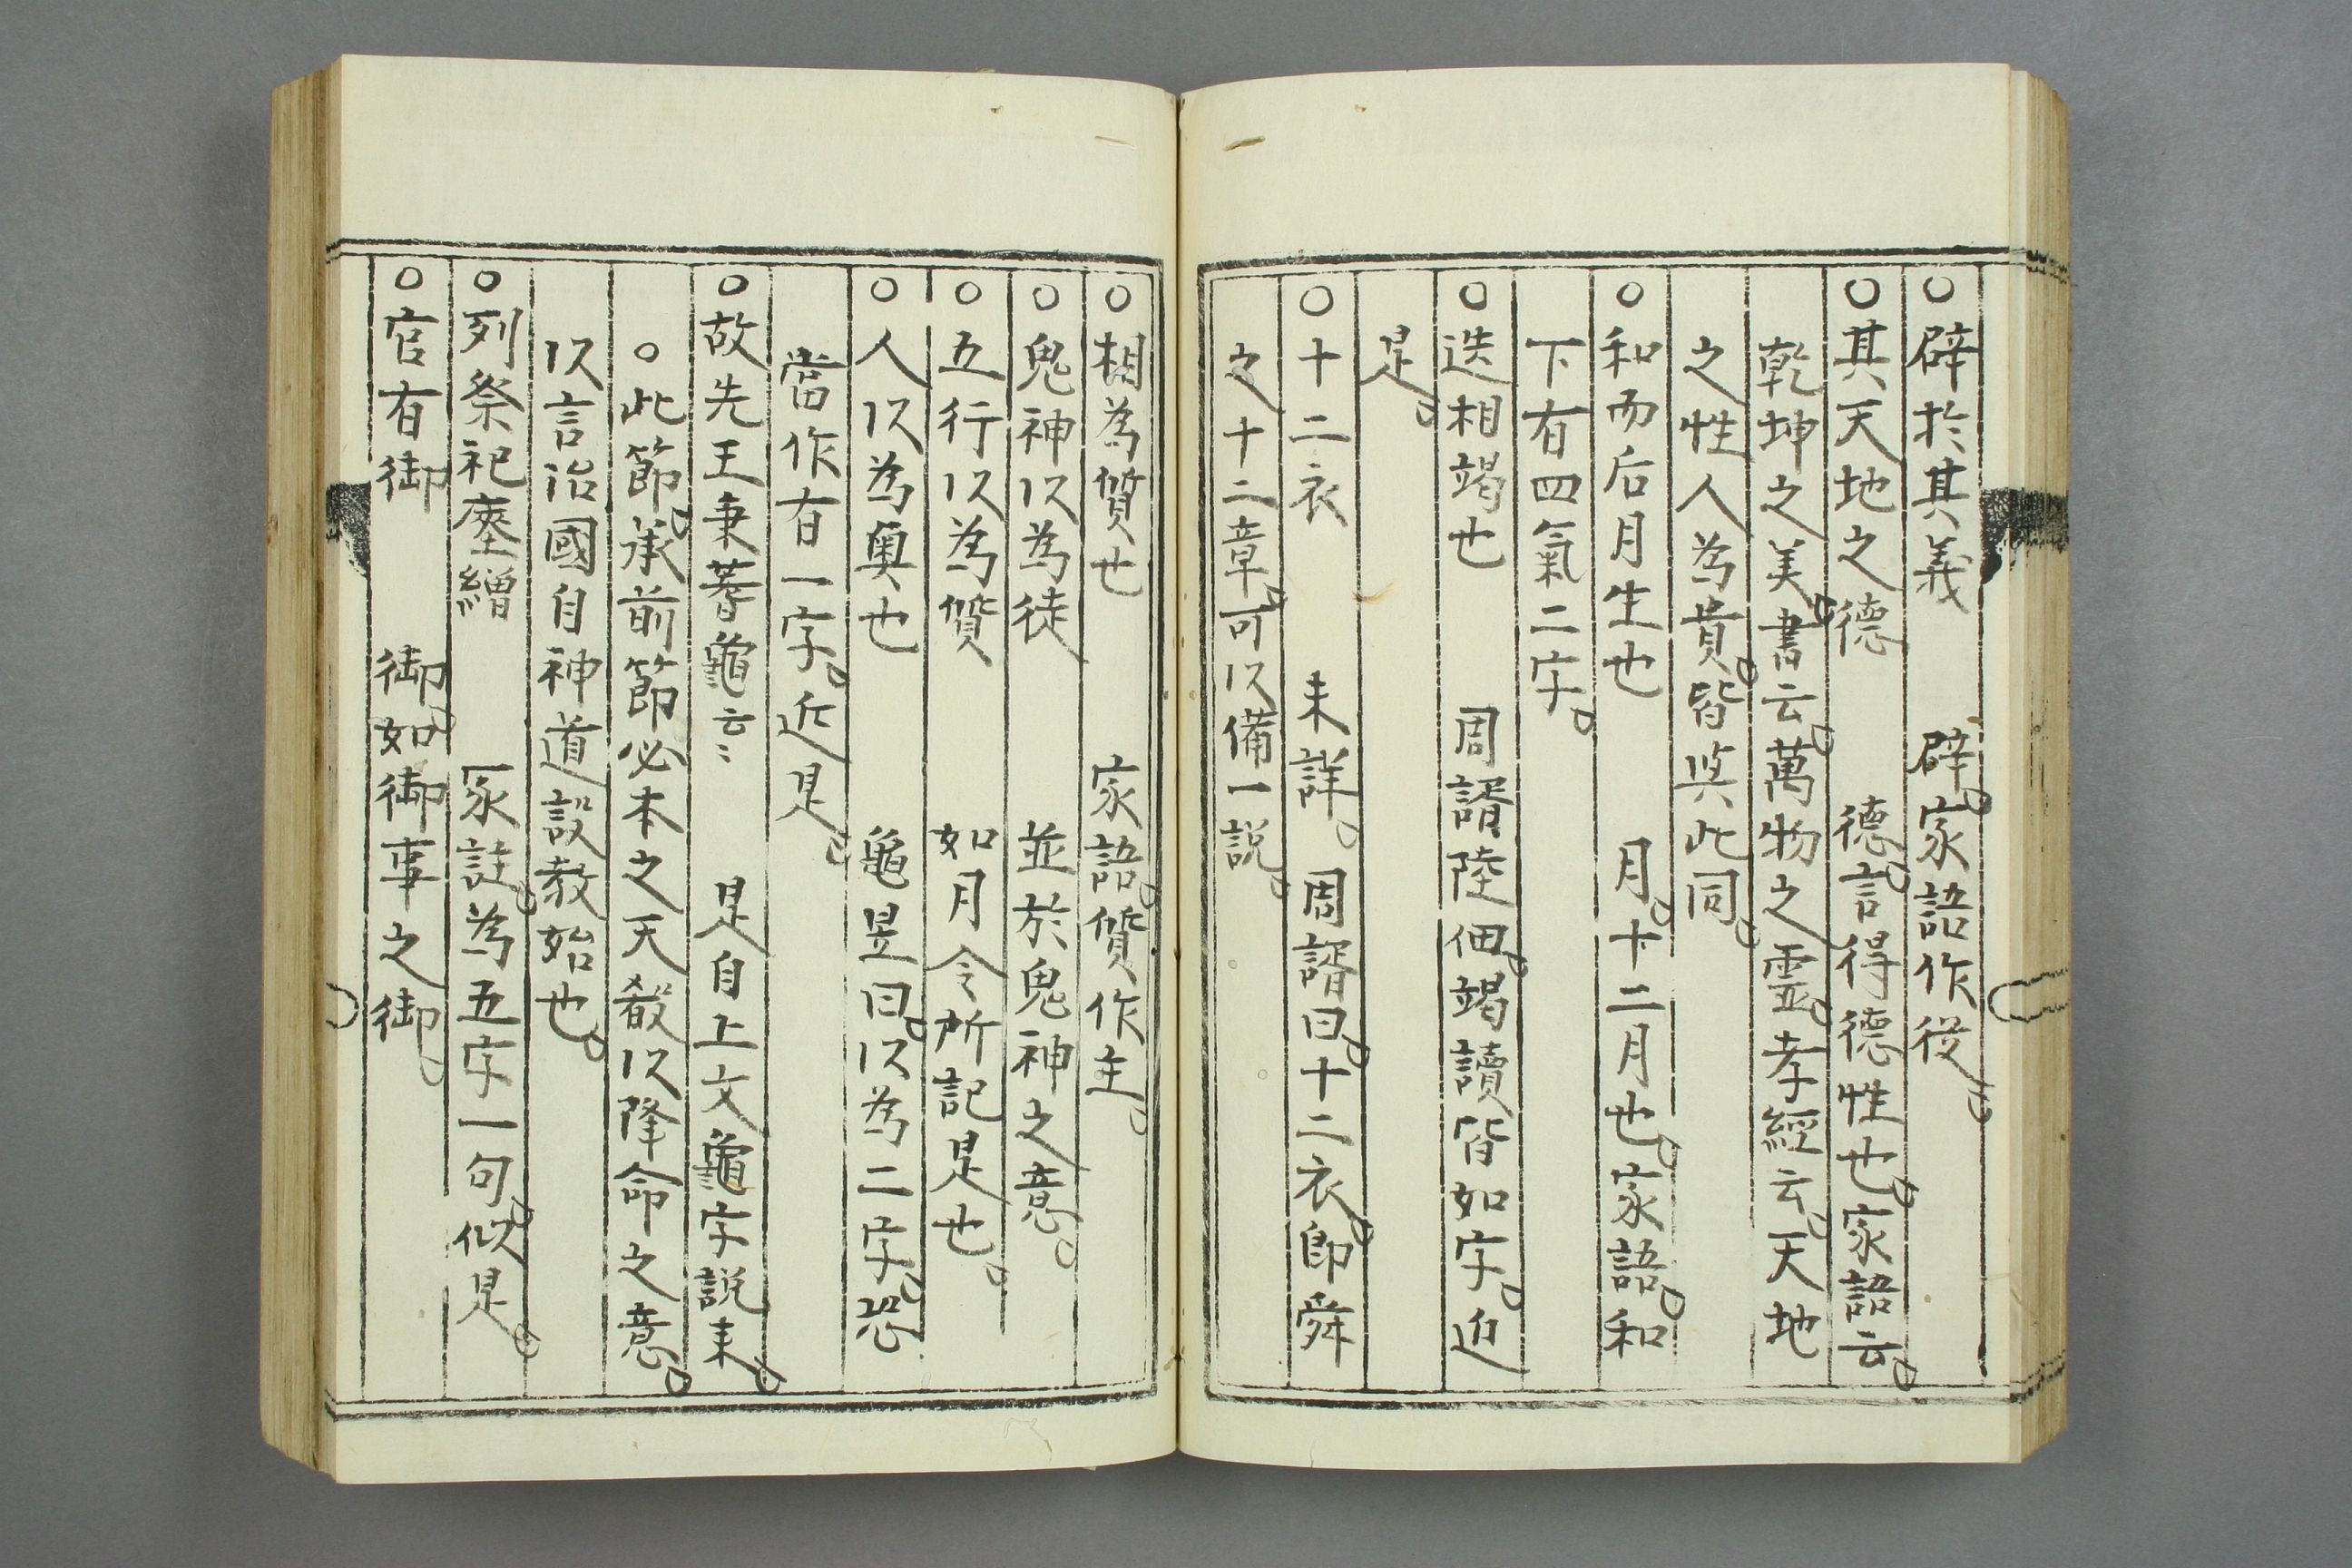 ○辟於其義　辟。家語作役。
○其天地之德　德。言得德性也。家語云。
乾坤之美。書云。萬物之霊。孝經云。天地
之性人為貴。皆與此同。
○和而后月生也　月。十二月也。家語。和
下有四氣二字。
○迭相竭也　周諝陸佃。竭讀皆如字。近
是。
○十二衣　未詳。周諝曰。十二衣。即舜
之十二章。可以備一説。
○相為質也　家語。質作主。
○鬼神以為徒　並於鬼神之意。
○五行以為質　如月令所記是也。
○人以為奥也　龜昱曰。以為二字。恐
當作有一字。近是。
○故先王秉蓍龜云〻　是自上文龜字説来。
○此節。承前節必本之天殽以降命之意。
以言治國自神道設教始也。
○列祭祀瘞繒　冢註。為五字一句。似是。
○官有御　御。如御事之御。